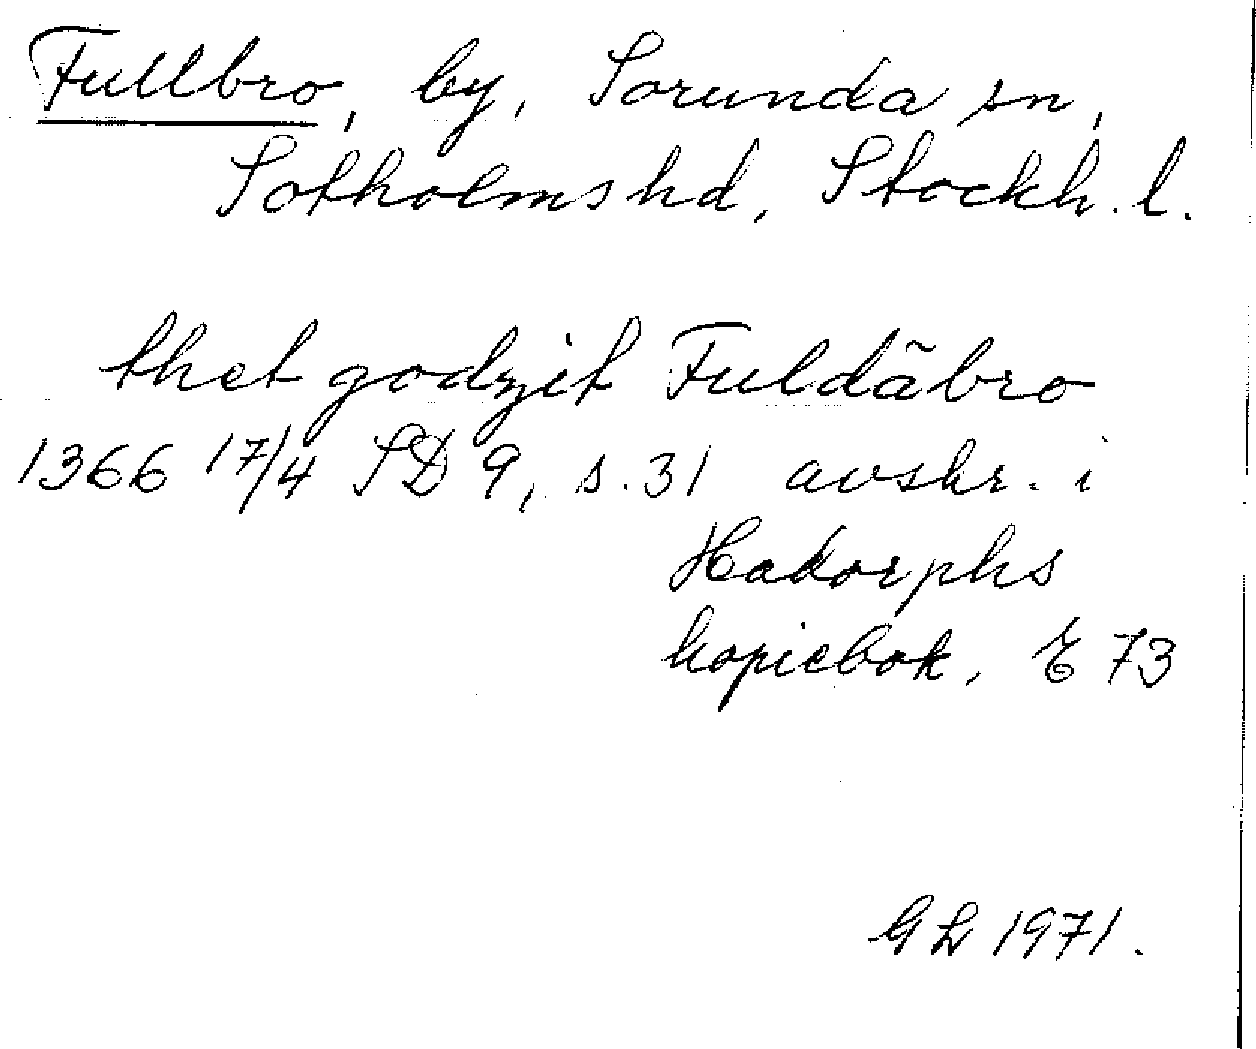 Fullbro, by, Sorunda sn,
Sotholms hd, Stockh. l.
thet godzit Fuldãbro
1366 17/4 SD 9, s. 31 avskr. i
Hadorphs
kopiebok, E 73
GL 1971.